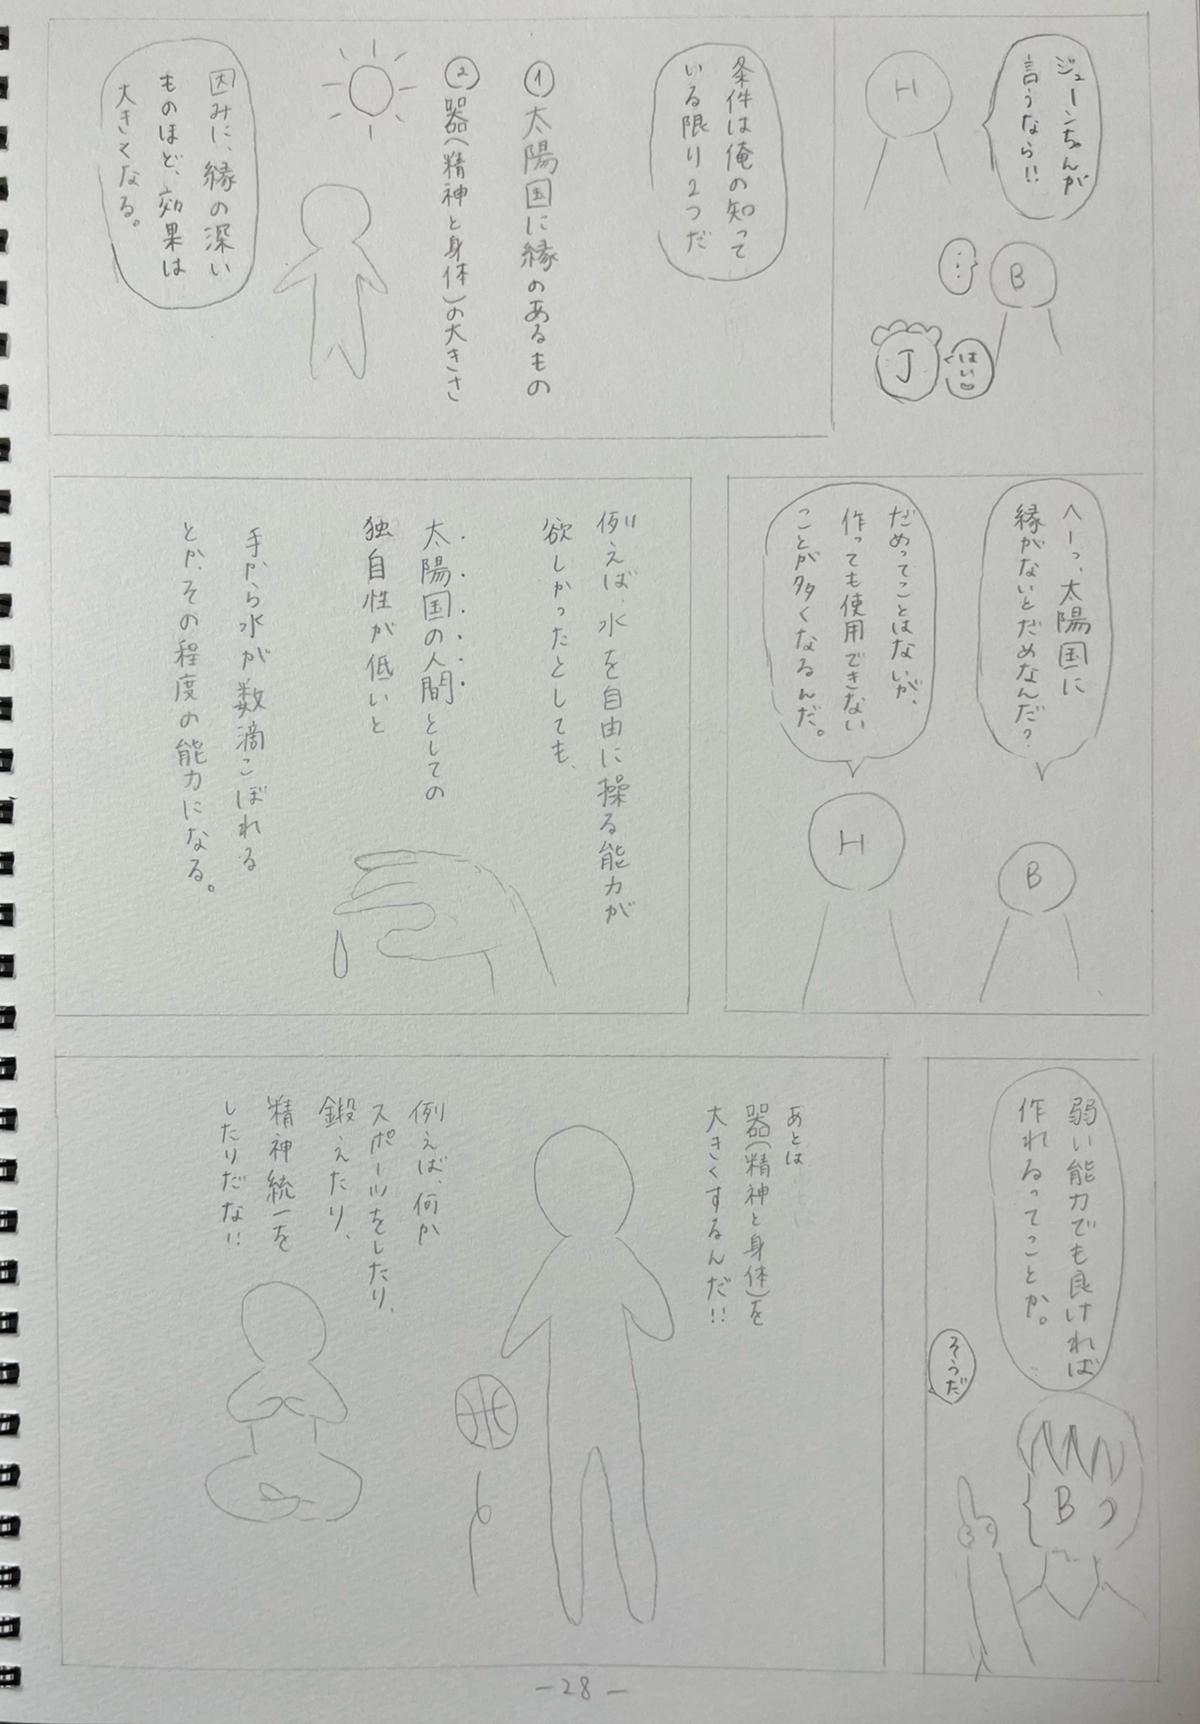 ジューンちゃんが
言うなら!!
H
B
・・・
J
はい♡
条件は俺の知って
いる限り2つだ
① 太陽国に縁のあるもの
② 器(精神と身体)の大きさ
因みに、縁の深い
ものほど、効果は
大きくなる。
へーっ、太陽国に
縁がないとだめなんだ?
B
だめってことはないが、
作っても使用できない
ことが多くなるんだ。
H
例えば、水を自由に操る能力が
欲しかったとしても、
太陽国の人間としての
独自性が低いと
手から水が数滴こぼれる
とか、その程度の能力になる。
弱い能力でも良ければ
作れるってことか。
そうだ
B
あとは
器(精神と身体)を
大きくするんだ!!
例えば、何か
スポーツをしたり、
鍛えたり、
精神統一を
したりだな!!
-28-